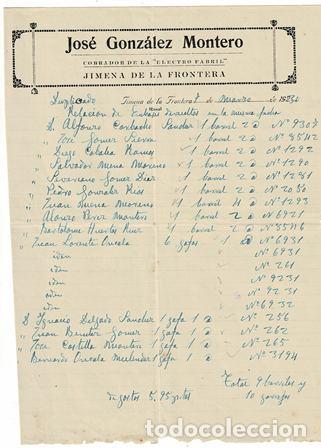 José González Montero
COBRADOR DE LA "ELECTRO FABRIL"
JIMENA DE LA FRONTERA
Duplicado Jimena de la Frontera 7 de Marzo de 1930
Relación de Envases devueltos en la misma fecha
D. Alfonso Corbacho Sanchez 1 barril 2 @ Nº 9307
" José Gomez Sierra 1 barril 2 @ Nº 8542
" Luis Catalan Ramos 1 barril 2 @ Nº 1292
" Salvador Mena Moreno 1 barril 2 @ Nº 1290
" Severiano Gomez Diaz 1 barril 2 @ Nº 1281
" Pedro Gonzalez Rios 1 barril 2 @ Nº 2050
" Juan Mena Moreno 1 barril 4 @ Nº 1293
" Alonso Perez Montero 1 barril 2 @ Nº 6921
" Bartolome Huertas Ruiz 1 barril 2 @ Nº 8546
" Juan Lorente 6 gafas 1 @ Nº 6931
iden Nº 6931
iden Nº 261
iden Nº 9231
iden Nº 9231
iden Nº 6932
D. Ignacio Delgado Sanchez 1 gafa 1 @ Nº 256
" Juan Benitez Gomez 1 gafa 1 @ Nº 262
" José Castilla Montero 1 gafa 1 @ Nº 265
" Bernardo Melendez 1 gafa 1 @ Nº 3194
Total 9 barriles y
de gastos 5,95 ptas 10 garrafas
todocoleccion.net